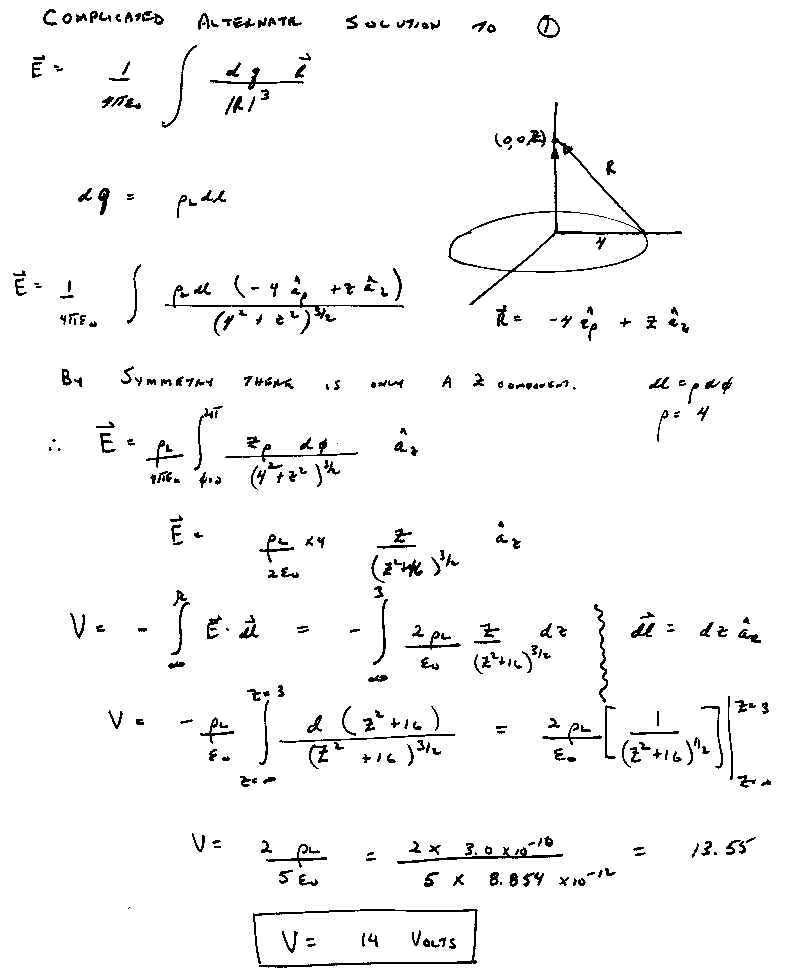 COMPLICATED ALTERNATE SOLUTION TO ①
E⃗ = 1/(4πε₀) ∫ dq R⃗ / |R|³
(0,0,Z)
R
4
dq = ρL dl
E⃗ = 1/(4πε₀) ∫ ρL dl (-4 âρ + z âz) / (4² + z²)^(3/2)
R⃗ = -4 âρ + z âz
BY SYMMETRY THERE IS ONLY A Z COMPONENT.
dl = ρ dφ
ρ = 4
∴ E⃗ = ρL/(4πε₀) ∫_{φ=0}^{2π} zρ dφ / (4² + z²)^(3/2) âz
E⃗ = ρL/(2ε₀) × 4 z/(z²+16)^(3/2) âz
V = - ∫_∞^R E⃗ · dl⃗ = - ∫_∞^3 2ρL/ε₀ z/(z²+16)^(3/2) dz
dl⃗ = dz âz
V = - ρL/ε₀ ∫_{z=∞}^{z=3} d(z²+16)/(z²+16)^(3/2) = 2ρL/ε₀ [1/(z²+16)^(1/2)] |_{z=∞}^{z=3}
V = 2ρL/(5ε₀) = (2 × 3.0 ×10⁻¹⁰)/(5 × 8.854 ×10⁻¹²) = 13.55
V = 14 VOLTS